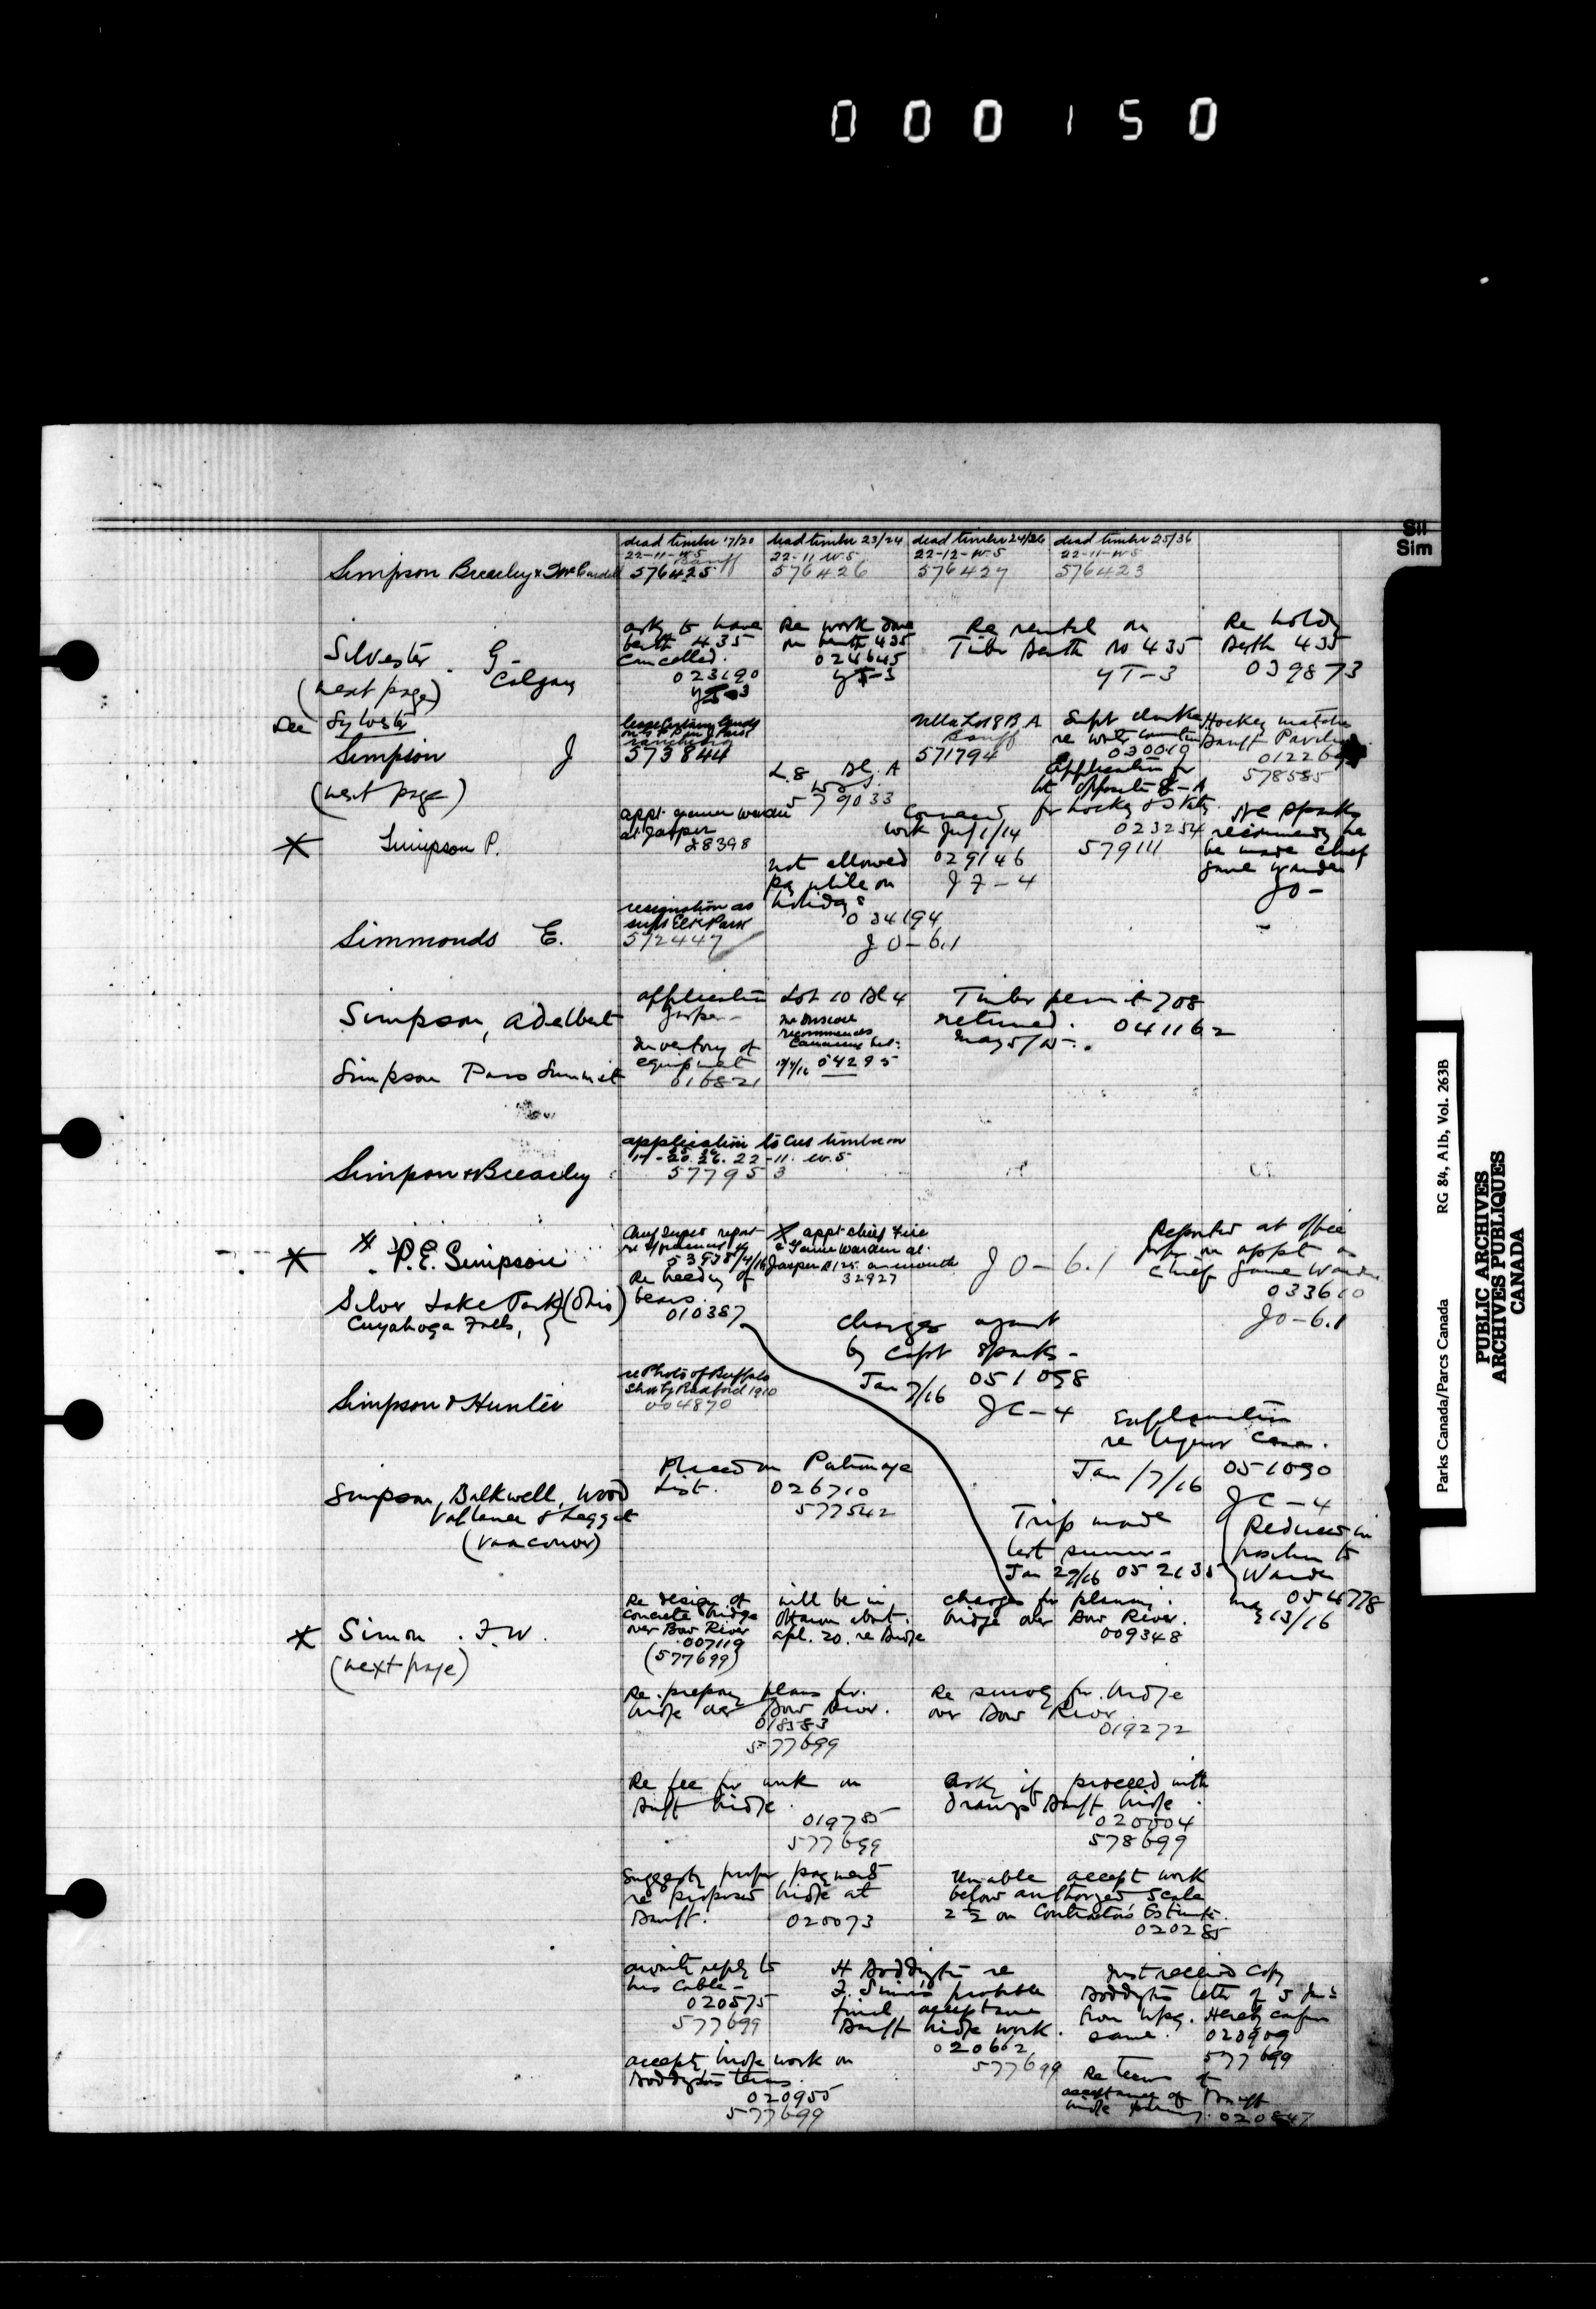 000150
Sil
Sim
dead timber 17/20
22-11-W.5
Banff
576425
dead timber 23/24
22-11 W.5
576426
dead timber 24/26
22-12-W.5
576427
dead timber 25/36
22-11-W.5
576423
Simpson Brearley &
Silvester G-
Calgary
(next page)
See Sylvester
asks to have
berth 435
Cancelled.
023190
YT-3
Re work done
on berth 435
024645
YT-3
Re rental on
Timber Berth No 435
YT-3
Re holdg
Berth 435
039873
Simpson J
(next page)
ranching
573844
L.8 Bl. A
579033
Villa Lot 8 B A
Banff
571794
030019
Application for
lot opposite 8-A
for hockey & skatg.
023254
579111
Hockey match
Banff Pavilion
578585
* Simpson P.
appt. game warden
at Jasper
28398
not allowed
pay while on
holidays
034194
JO-6.1
work Jny 1/14
029146
J7-4
recommends he
be made chief
game warden
JO-
Simmonds E.
resignation as
supt Elk Park
572447
Simpson, Adelbert
application
Jasper-
Lot 10 Bl 4
recommends
04295
Timber permit 708
returned. 041162
May 5/15.
Simpson Pass Summit
Inventory of
equipment
016821
Simpson & Brearley
application to cut timber on
22-11. W.5
577953
* P.E. Simpson
Chief Super report
X appt chief Fire
& Game Warden at
Jasper $125 a month
32927
JO-6.1
Reported at office
appt as
Chief Game Warden
033610
JO-6.1
Silver Lake Park (Ohio)
Cuyahoga Falls,
bears.
010387
Charges against
by Capt Sparks-
Jan 7/16 051058
JC-4
Simpson & Hunter
re Photo of Buffalo
Shot by Radford 1910
004870
Explanation
re liquor case.
Jan 17/16 051090
JC-4
Simpson, Balkwell, Wood
(Vancouver)
Placed on Patronage
List. 026710
577542
Trip made
last summer-
Jan 29/16 052135
Reduced in
position to
Warden
054778
May 13/16
* Simon . F.W.
(next page)
Re design of
concrete bridge
over Bow River
007119
(577699)
will be in
Ottawa about
apl. 20. re bridge
charges for planning
bridge over Bow River.
009348
Re. preparg plans for
bridge over Bow River.
018383
577699
Re survey for bridge
over Bow River
019272
Re fee for work on
Banff bridge.
019785
577699
Asks if proceed with
drawings Banff bridge.
020004
578699
Suggests proper payment
re proposed bridge at
Banff.
020073
Unable accept work
below authorized scale
2½ on Contractor's Estimate.
020285
awaits reply to
his Cable-
020575
577699
H Boddington re
F. Simon's probable
final acceptance
Banff bridge work.
020662
577699
Just received copy
Boddington's letter of 5
from Wpg. Hereby confirm
same. 020909
577699
accepts bridge work on
Boddington's terms.
020955
577699
Re terms of
acceptance of Banff
020847
Parks Canada/Parcs Canada RG 84, A1b, Vol. 263B
PUBLIC ARCHIVES
ARCHIVES PUBLIQUES
CANADA